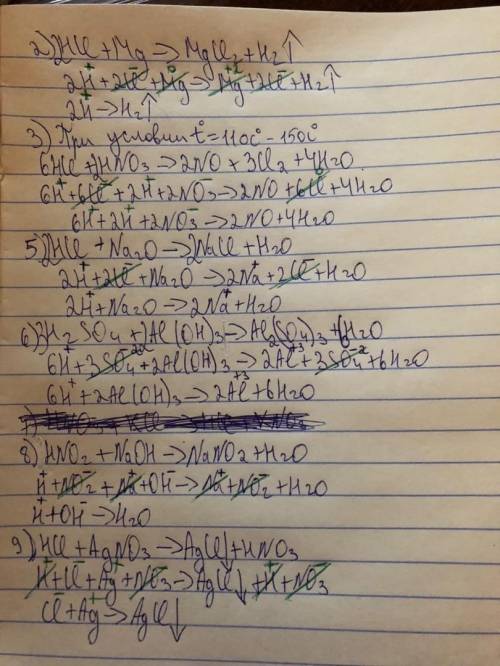 2) 2HCl + Mg → MgCl2 + H2↑
2H⁺ + 2Cl⁻ + Mg⁰ → Mg⁺² + 2Cl⁻ + H2↑
2H⁺ → H2↑
3) При условии t° = 110c° - 150c°
6HCl + 2HNO3 → 2NO + 3Cl2 + 4H2O
6H⁺ + 6Cl⁻ + 2H⁺ + 2NO3⁻ → 2NO + 6Cl⁰ + 4H2O
6H⁺ + 2H⁺ + 2NO3⁻ → 2NO + 4H2O
5) 2HCl + Na2O → 2NaCl + H2O
2H⁺ + 2Cl⁻ + Na2O → 2Na⁺ + 2Cl⁻ + H2O
2H⁺ + Na2O → 2Na⁺ + H2O
6) 3H2SO4 + 2Al(OH)3 → Al2(SO4)3 + 6H2O
6H⁺ + 3SO4⁻² + 2Al(OH)3 → 2Al⁺³ + 3SO4⁻² + 6H2O
6H⁺ + 2Al(OH)3 → 2Al⁺³ + 6H2O
8) HNO2 + NaOH → NaNO2 + H2O
H⁺ + NO2⁻ + Na⁺ + OH⁻ → Na⁺ + NO2⁻ + H2O
H⁺ + OH⁻ → H2O
9) HCl + AgNO3 → AgCl↓ + HNO3
H⁺ + Cl⁻ + Ag⁺ + NO3⁻ → AgCl↓ + H⁺ + NO3⁻
Cl⁻ + Ag⁺ → AgCl↓